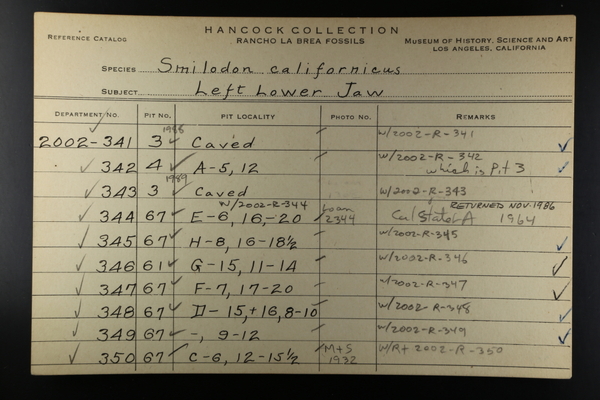 HANCOCK COLLECTION
REFERENCE CATALOG RANCHO LA BREA FOSSILS MUSEUM OF HISTORY, SCIENCE AND ART
LOS ANGELES, CALIFORNIA
SPECIES Smilodon californicus
SUBJECT Left Lower Jaw
DEPARTMENT NO. PIT NO. PIT LOCALITY PHOTO NO. REMARKS
2002-341 3 Caved w/2002-R-341
342 4 A-5, 12 w/2002-R-342
which is Pit 3
343 3 Caved w/2002-R-343
w/2002-R-344 Loan RETURNED NOV. 1986
344 67 E-6, 16,-20 2344 Cal State LA 1964
345 67 H-8, 16-18½ w/2002-R-345
346 61 G-15, 11-14 w/2002-R-346
347 67 F-7, 17-20 w/2002-R-347
348 67 D-15,+16, 8-10 w/2002-R-348
349 67 -, 9-12 w/2002-R-349
350 67 C-6, 12-15½ M+S W/R+ 2002-R-350
1932